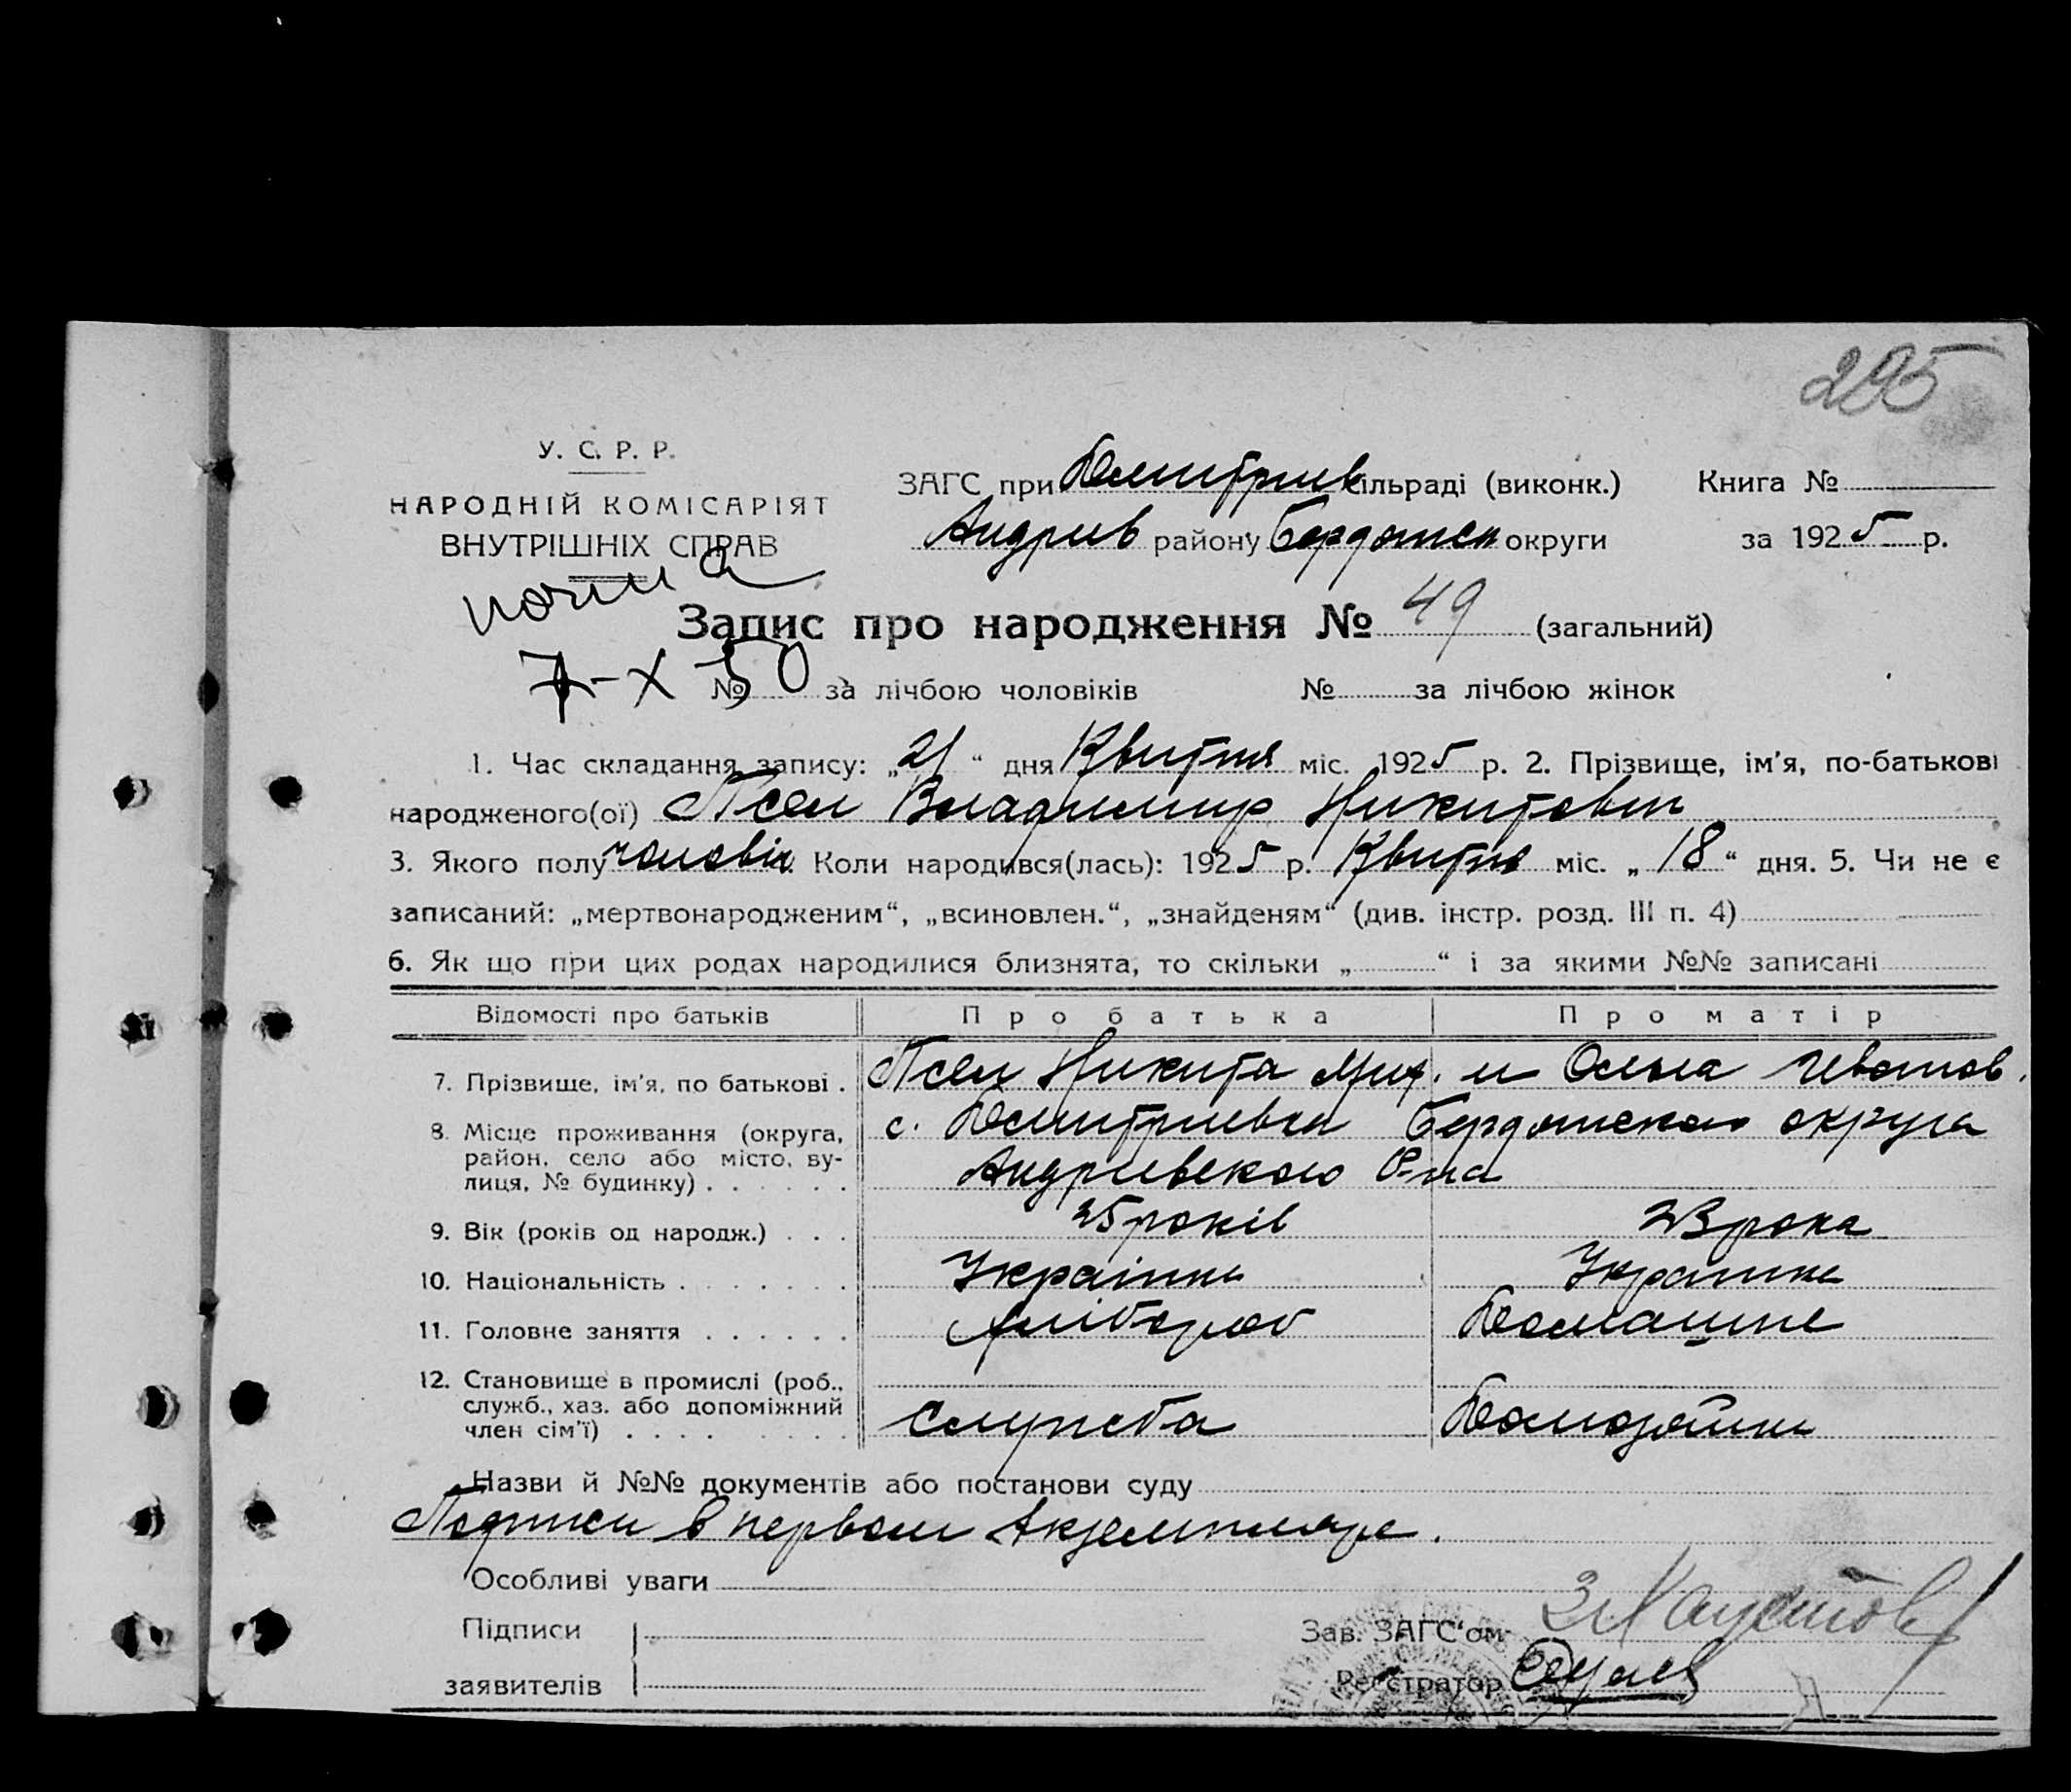 295
У. С. Р. Р.
НАРОДНІЙ КОМІСАРІЯТ
ВНУТРІШНІХ СПРАВ
ЗАГС при Дмитрив сільраді (виконк.) Книга №
Андрив району Бердянск округи за 1925 р.
Запис про народження № 49 (загальний)
7-X 50
№ за лічбою чоловіків № за лічбою жінок
1. Час складання запису: „21“ дня Квитня міс. 1925 р. 2. Прізвище, ім'я, по-батькові
народженого(ої) Псел Владимир Никитович
3. Якого полу чоловік. Коли народився(лась): 1925 р. Квитня міс. „18“ дня. 5. Чи не є
записаний: „мертвонародженим“, „всиновлен.“, „знайденям“ (див. інстр. розд. III п. 4)
6. Як що при цих родах народилися близнята, то скільки „ “ і за якими №№ записані
Відомості про батьків Про батька Про матір
7. Прізвище, ім'я, по батькові . Псел Никита и Ольга
8. Місце проживання (округа, с. Дмитриевка Бердянского округа
район, село або місто, ву-
лиця, № будинку) . . . . . . Андриевского Р-на
9. Вік (років од народж.) . . . 25 років 23 рока
10. Національність . . . . . . . Українец Українка
11. Головне заняття . . . . . . Хлібороб Домашне
12. Становище в промислі (роб.,
служб., хаз. або допоміжний Служба
член сім'ї) . . . . . . . . .
Назви й №№ документів або постанови суду
Подписи в первом Акземпляре.
Особливі уваги
Підписи
заявителів
Зав. ЗАГС'ом
Реєстратор